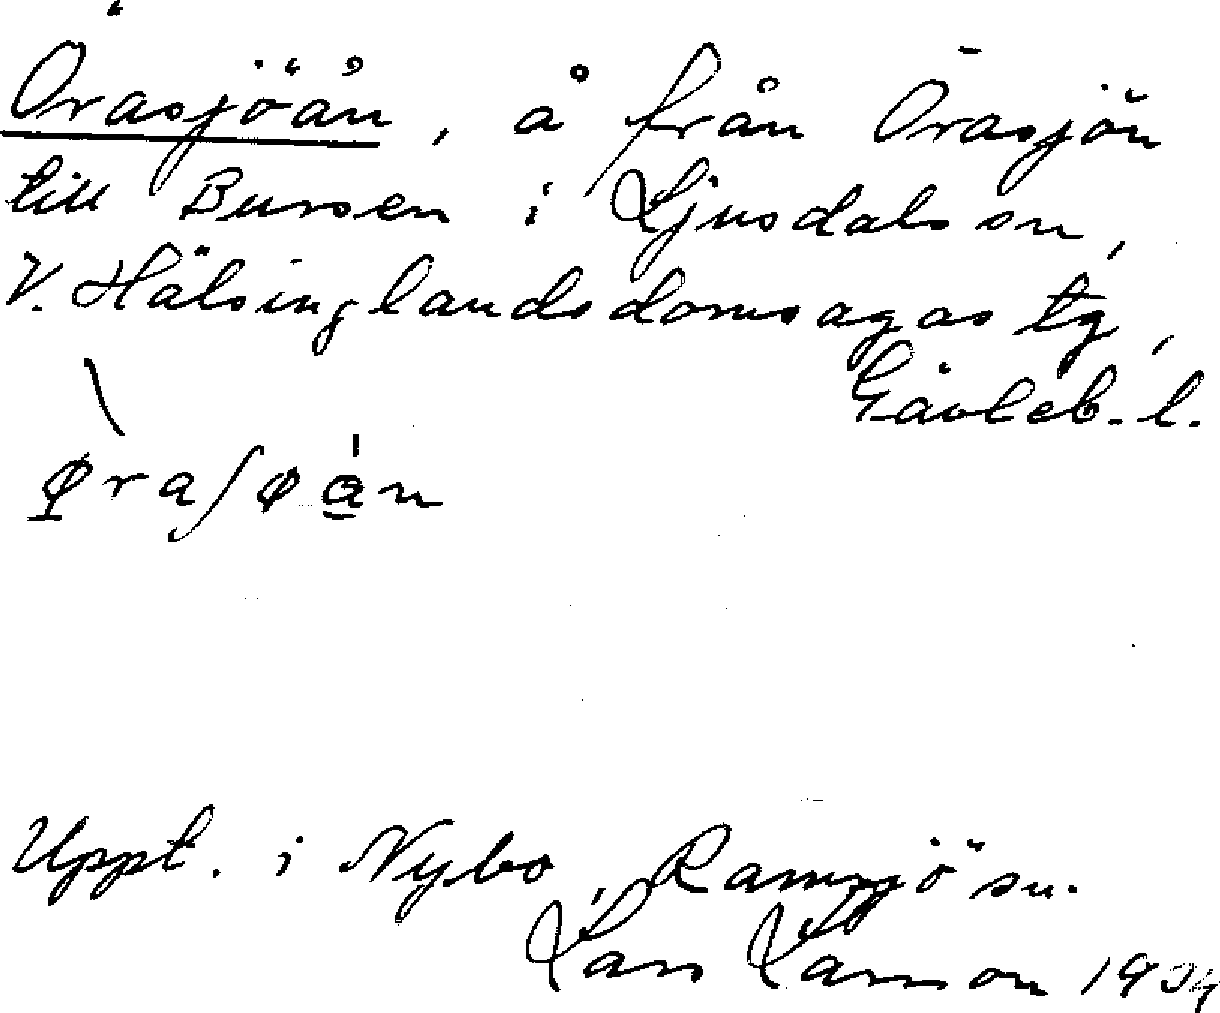 Örasjöån, å från Örasjön
till Bursen i Ljusdals sn,
V. Hälsinglandsdomsagas tg,
Gävleb. l.
ø̱raʃøa̱n
Uppt. i Nybo, Ramsjö sn.
Lars Larsson 1934